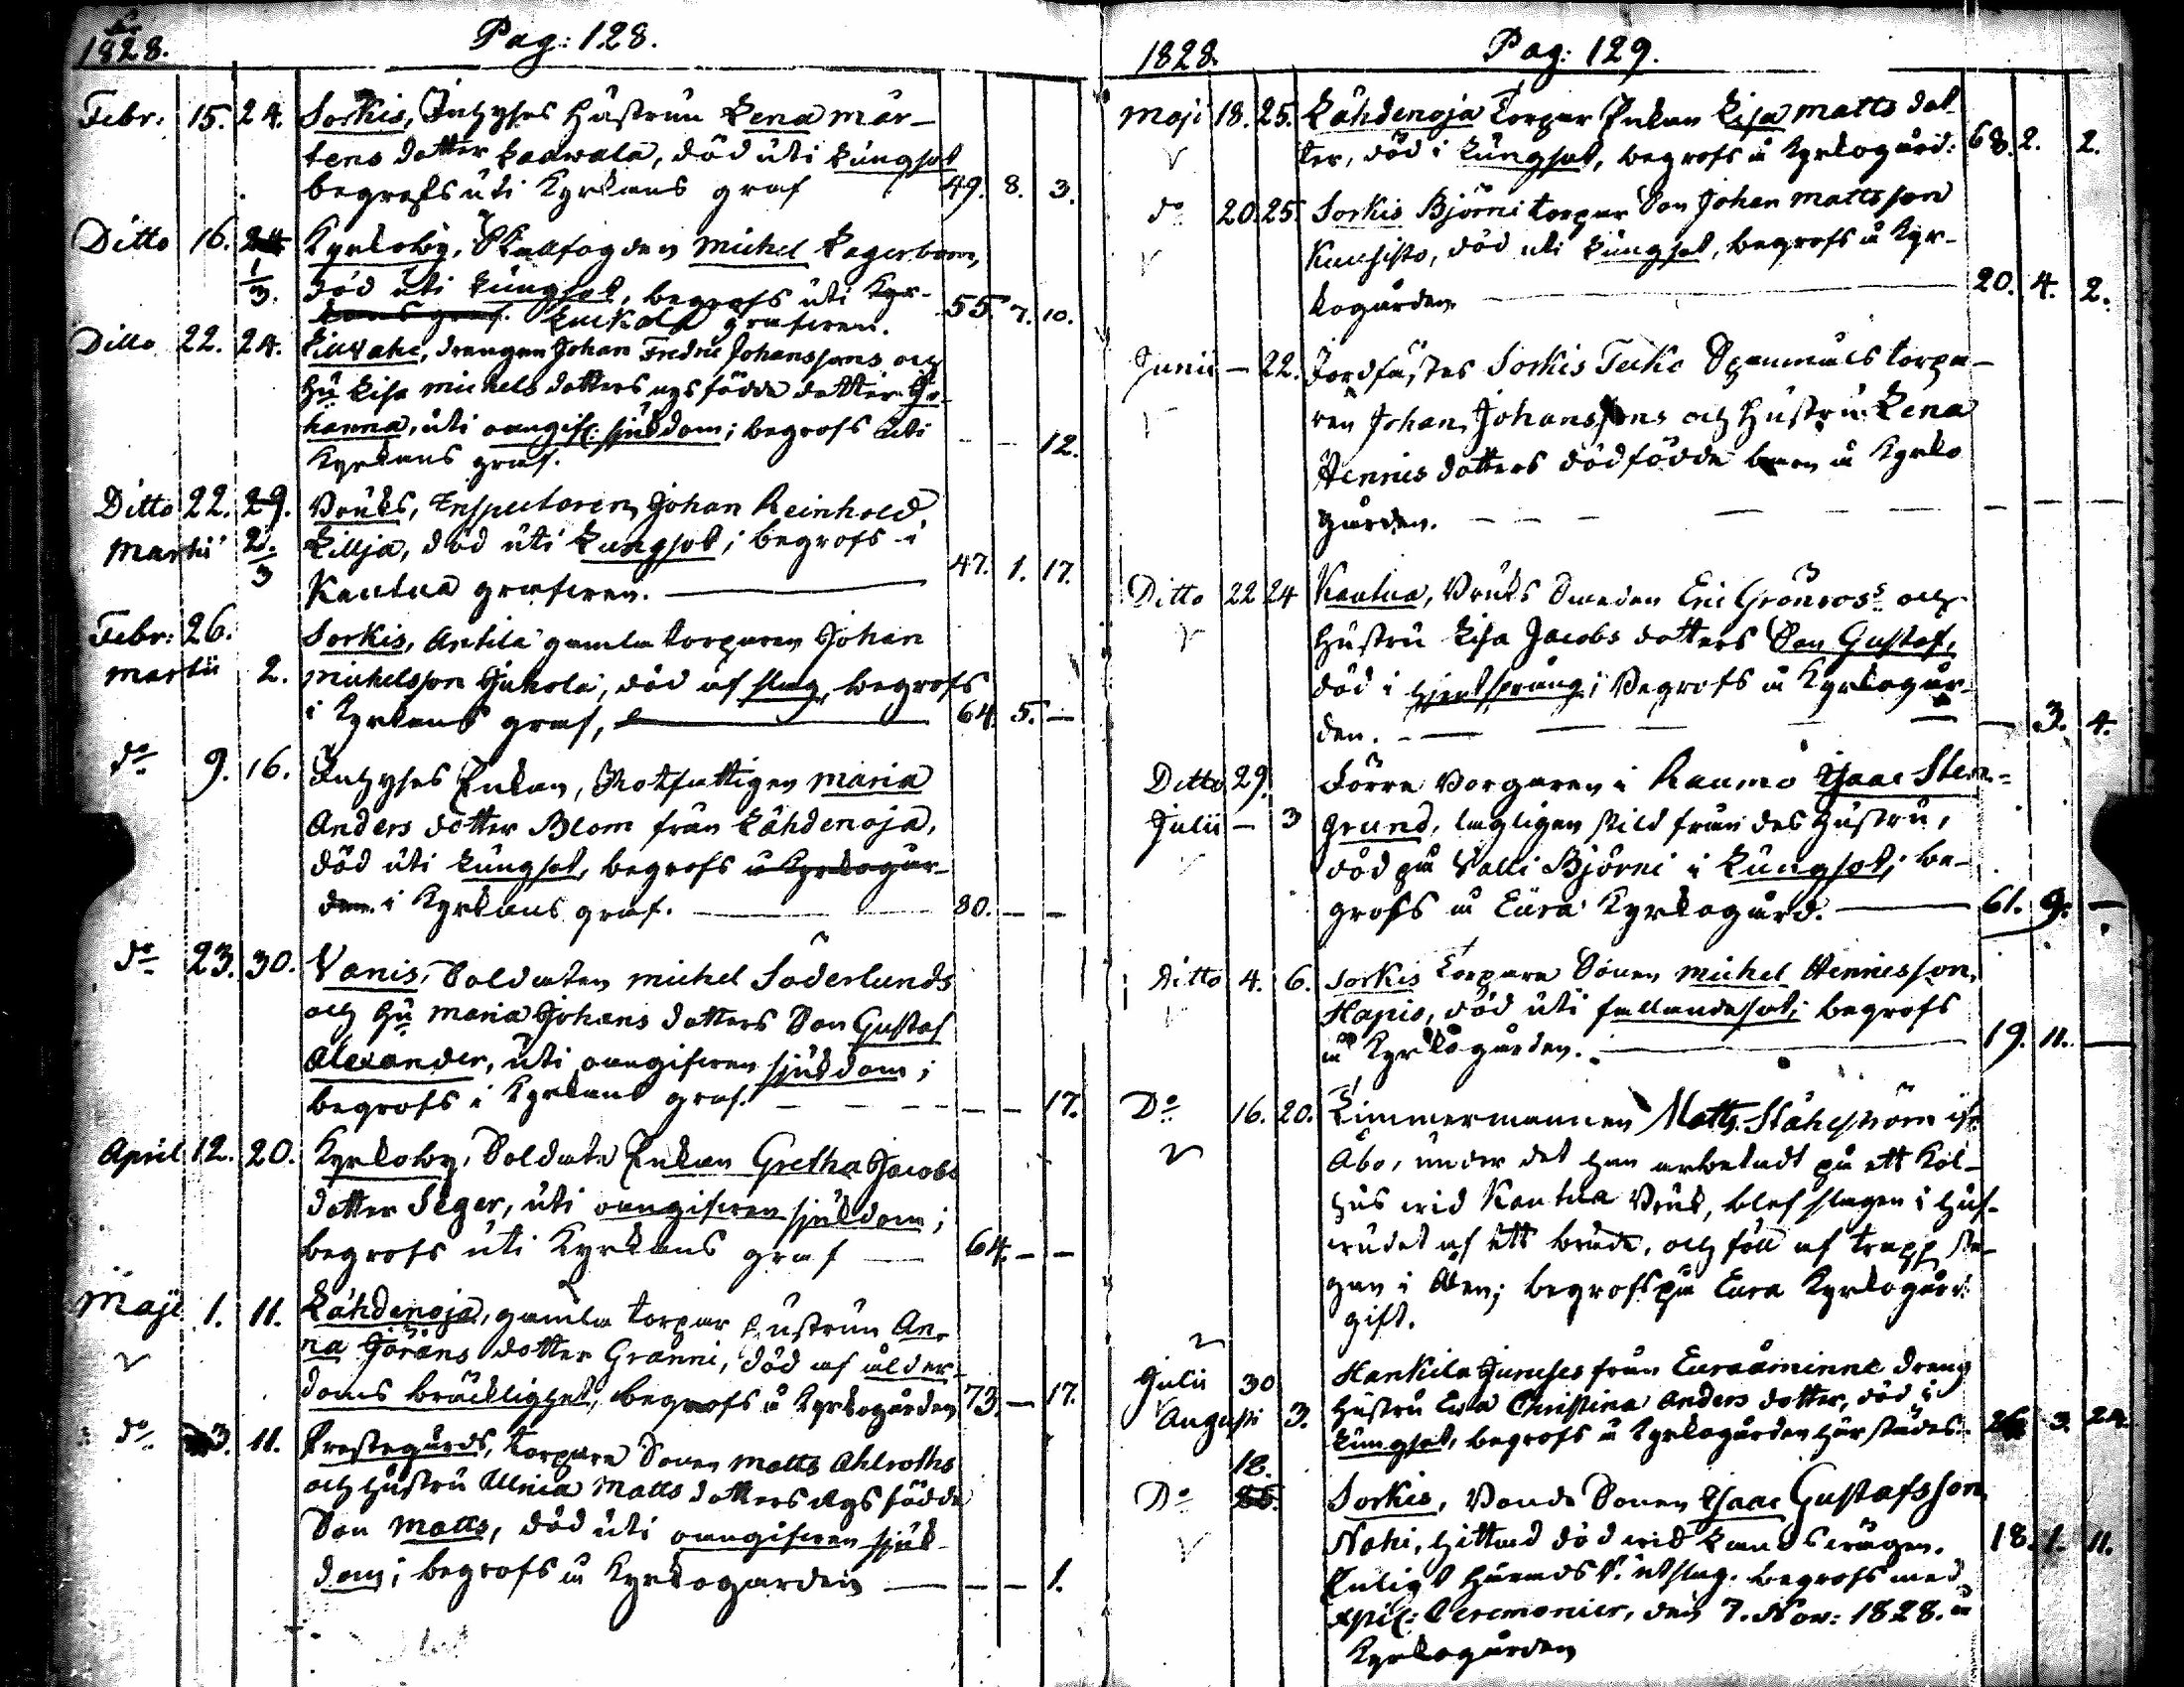 1828. Pag: 128.
Febr: 15. 24. Sorkis, Inhyses Hustrun Lena Mår-
tens dotter Kaawala, död uti Lungsot
begrofs uti Kyrkans graf 49. 8. 3.
Ditto 16. 24 Kyrkoby, Skallfogden Michel Lagerbom,
1/3. död uti Lungsot, begrofs uti Kyr-
kans graf. grafven. 55. 7. 10.
Ditto 22. 24. drengen Johan Fredric Johanssons och
Hu Lisa Michels dotters ägs födde dotter Jo-
hanna, uti oangif: sjukdom; begrofs uti
Kyrkans graf. – – 12.
Ditto 22. 29. Bruks, Inspectoren Johan Reinhold
Martii 2/3 Lillja, död uti Lungsot; begrofs i
Kautua grafven. 47. 1. 17.
Febr: 26. Sorkis, Antila gamla torparen Johan
Martii 2. Michelsson Jukola, död af slag, begrofs
i Kyrkans graf, 64. 5. –
do 9. 16. Inhyses Enkan, Rotfattigen Maria
Anders dotter Blom från Lähdenoja,
död uti Lungsot, begrofs å Kyrkogår-
den. i Kyrkans graf. 80. – –
do 23. 30. Vanis, Soldaten Michel Söderlunds
och Hu Maria Johans dotters Son Gustaf
Alexander, uti oangifven sjukdom;
begrofs i Kyrkans graf. – – 17.
April 12. 20. Kyrkoby, Soldats Enkan Gretha Jacobs
dotter Seger, uti oangifven sjukdom;
begrofs uti Kyrkans graf 64. – –
Maji 1. 11. Lähdenoja, gamla torpar Hustrun An-
na Jörans dotter Granni, död af ålder-
doms bräcklighet, begrofs å Kyrkogården 73. – 17.
do 3. 11. Prestegårds, torpare Sonen Matts Ahlroths
och Hustru Ulrica Matts dotters ägs födde
Son Matts, död uti oangifven sjuk-
dom; begrofs å Kyrkogården – – 1.
1828. Pag: 129.
Maji 18. 25. Lähdenoja torpar Enkan Lisa Matts dot-
ter, död i Lungsot, begrofs å Kyrkogård: 68. 2. 2.
do 20. 25. Sorkis Björni torpar Son Johan Mattsson
död uti Lungsot, begrofs å Kyr-
kogården 20. 4. 2.
Junii – 22. Jordfästes Sorkis Teeko Spanmåls torpa-
ren Johan Johanssons och Hustru Lena
Henrics dotters dödfödde barn å Kyrko
gården. – – –
Ditto 22 24 Kautua, Bruks Smeden Eric Grönros's och
Hustru Lisa Jacobs dotters Son Gustaf,
död i hjertsprång; Begrofs å Kyrkogår-
den. – 3. 4.
Ditto 29. Förre Borgaren i Raumo Isaac Sten-
Julii – 3 grund, lagligen skild från des Hustru,
död på Valli Björni i Lungsot; be-
grofs å Eura Kyrkogård. 61. 9. –
Ditto 4. 6. Sorkis torpare Sonen Michel Henricsson
Hapio, död uti fallandesot; begrofs
å Kyrkogården. 19. 11. –
Do 16. 20. Timmermannen Matts Ståhlström
Åbo, under det han arbetadt på ett Kol-
hus vid Kautua Bruk, blef slagen i huf-
vudet af ett bräde, och föll af trapp ste-
gen i åen; begrofs på Eura Kyrkogård
gift.
Julii 30 Hankila från Euraåminne dreng
Augusti 3. Hustru Eva Christina Anders dotter, död i
Lungsot, begrofs å Kyrkogården härstädes. 26 3. 24.
Do 18. Sorkis, Bonde Sonen Isaac Gustafsson
Nohi, hittad död vid Landsvägen. 18. 1. 11.
Enligt Härads R. utslag. begrofs med
Ceremonier, den 7. Nov: 1828. å
Kyrkogården